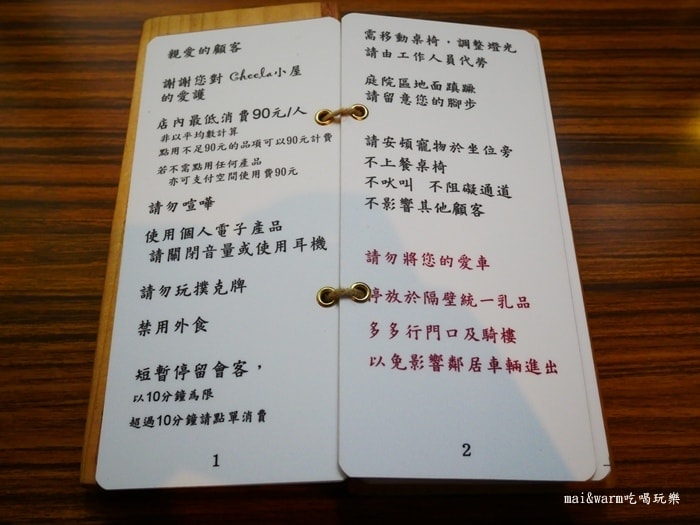 親愛的顧客
謝謝您對 Cheela小屋
的愛護
店內最低消費90元/人
非以平均數計算
點用不足90元的品項可以90元計費
若不需點用任何產品
亦可支付空間使用費90元
請勿喧嘩
使用個人電子產品
請關閉音量或使用耳機
請勿玩撲克牌
禁用外食
短暫停留會客，
以10分鐘為限
超過10分鐘請點單消費
1
需移動桌椅，調整燈光
請由工作人員代勞
庭院區地面蹎躓
請留意您的腳步
請安頓寵物於坐位旁
不上餐桌椅
不吠叫 不阻礙通道
不影響其他顧客
請勿將您的愛車
停放於隔壁統一乳品
多多行門口及騎樓
以免影響鄰居車輛進出
2
mai&warm吃喝玩樂